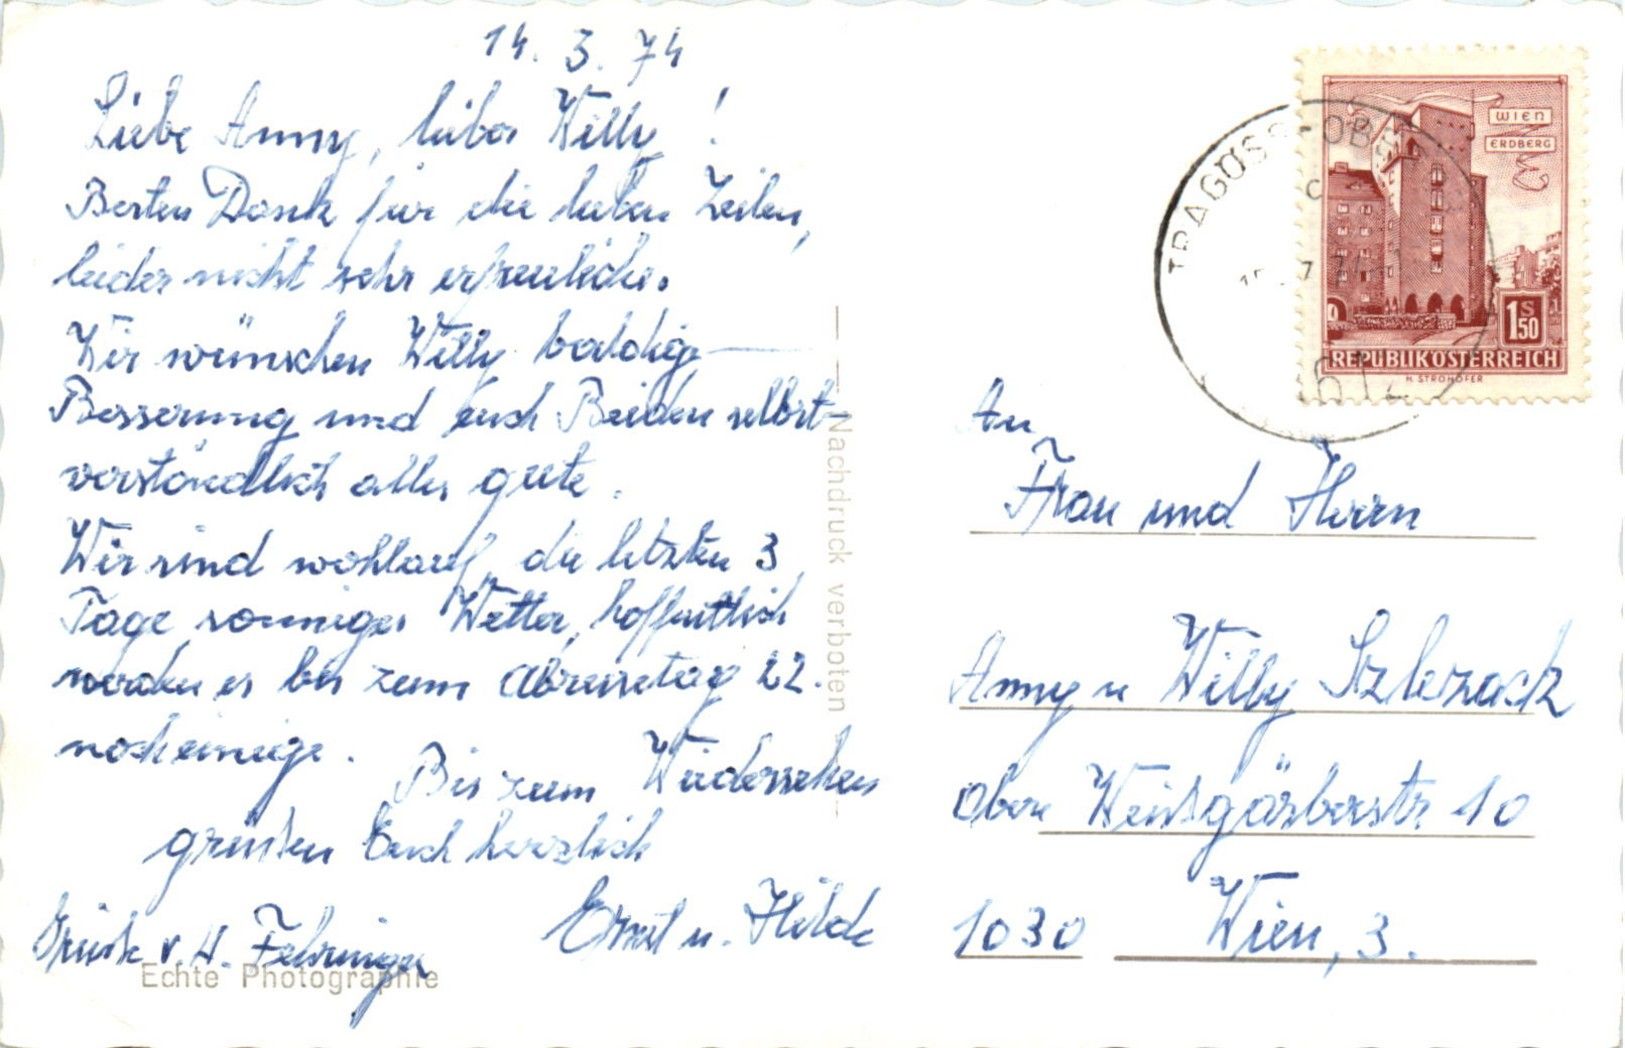 14. 3. 74
Liebe Anny, lieber Willy!
Besten Dank für die lieben Zeilen,
leider nicht sehr erfreuliche.
Wir wünschen Willy baldige
Besserung und euch Beiden selbst-
verständlich alles gute.
Wir sind wohlauf, die letzten 3
Tage sonniges Wetter, hoffentlich
werden es bis zum Abreisetag 22.
noch einige.
Bis zum Wiedersehen
grüssen Euch herzlich
Ernst u. Hilde
Grüsse v. H. Fehringer
Echte Photographie
Nachdruck verboten
TRAGÖSS-OB
WIEN
ERDBERG
1 S 50
REPUBLIK ÖSTERREICH
H. STROHOFER
An
Frau und Herrn
Anny u Willy Szlezack
Obere Weissgärberstr 10
1030 Wien, 3.